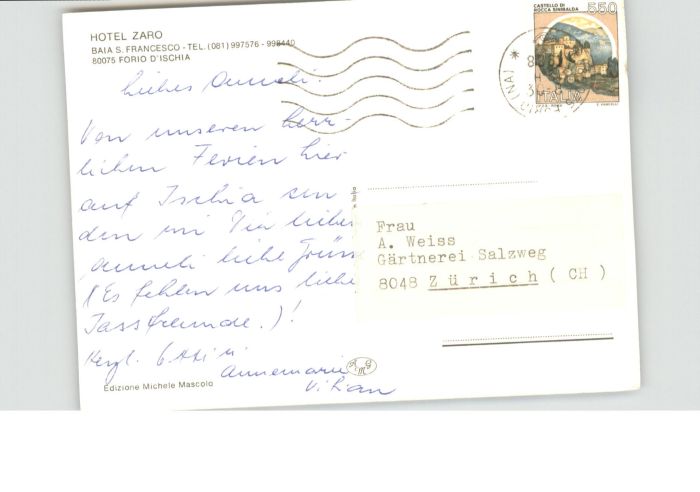 HOTEL ZARO
BAIA S. FRANCESCO - TEL. (081) 997576 - 998440
80075 FORIO D'ISCHIA
CASTELLO DI
ROCCA SINIBALDA
550
ITALIA
Liebes Anneli!
Von unseren herr-
lichen Ferien hier
auf Ischia sen
den wir Dir liebes
Anneli liebe Grüsse
(Es fehlen uns liebe
Jassfreunde.)!
Herzl.
Annemarie
Frau
A. Weiss
Gärtnerei Salzweg
8048 Zürich (CH)
Edizione Michele Mascolo